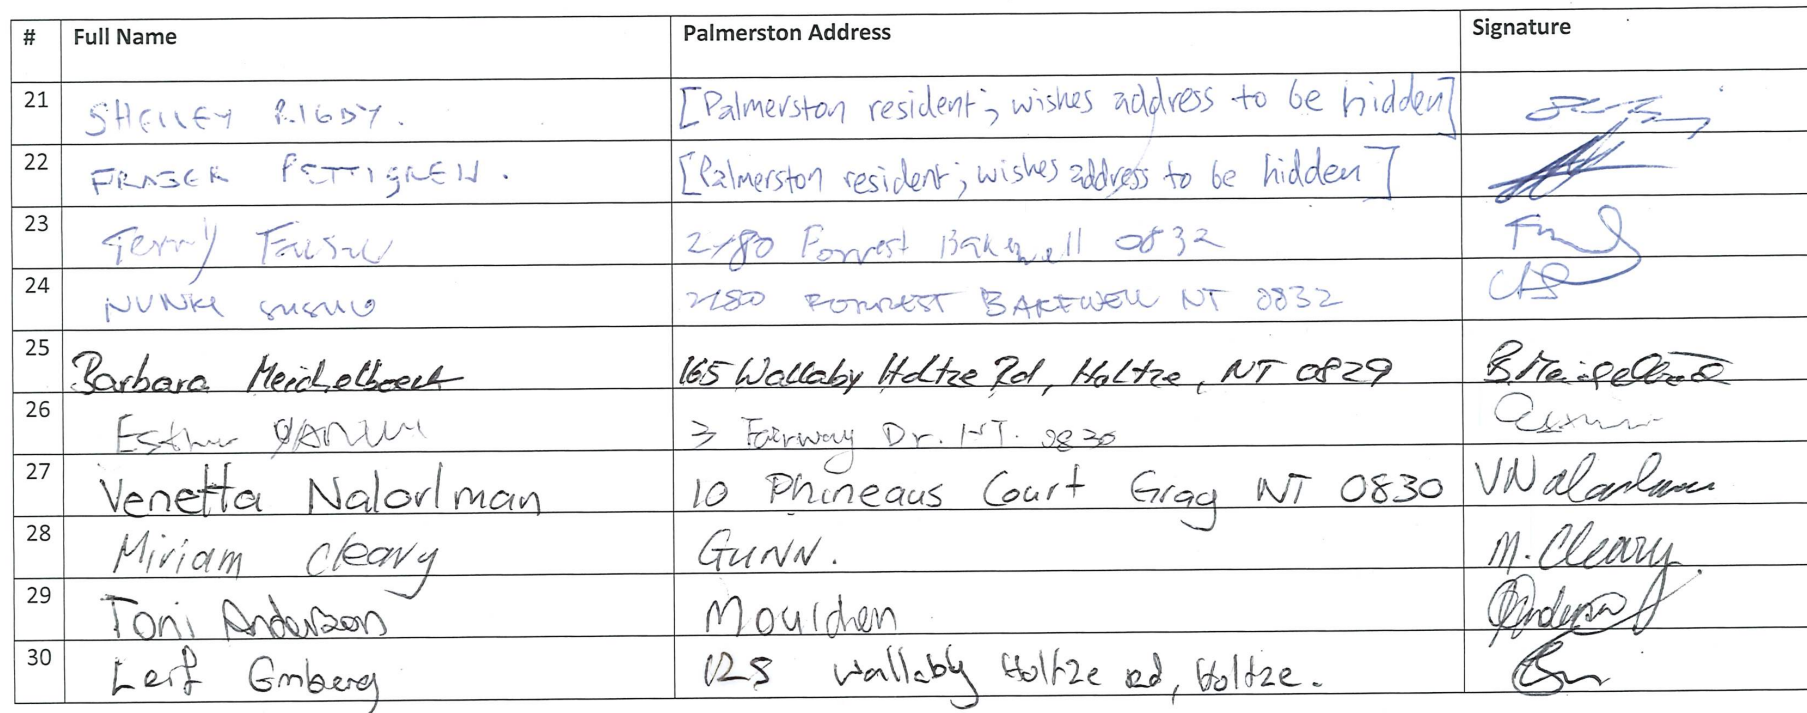 # Full Name Palmerston Address Signature
21 SHELLEY RIGBY. [Palmerston resident; wishes address to be hidden]
22 FRASER PETTIGREW. [Palmerston resident; wishes address to be hidden]
23 Terry 2/80 Forrest Bakewell 0832
24 2/80 FORREST BAKEWELL NT 0832
25 Barbara Meichelboeck 165 Wallaby Holtze Rd, Holtze, NT 0829
26 Esther 3 Fairway Dr. NT. 0830
27 Venetta Nalorlman 10 Phineaus Court Gray NT 0830
28 Miriam Cleary GUNN. M. Cleary.
29 Toni Anderson Moulden
30 Leif 125 Wallaby Holtze Rd, Holtze.